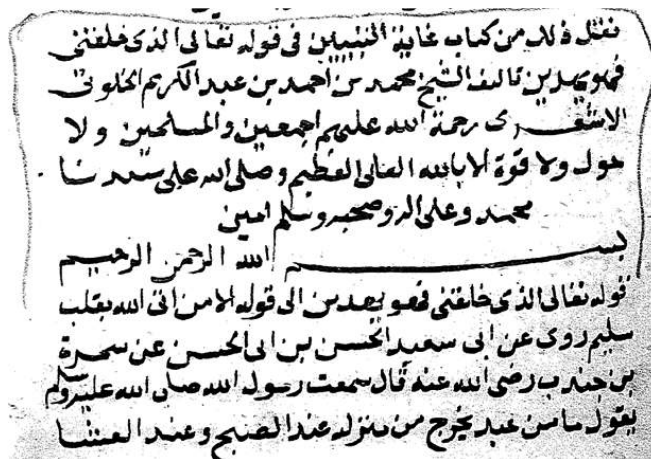 فنقل ذلك من كتاب غاية التبيين فى قوله تعالى الذى خلقنى
فهو يهدين تاليف الشيخ محمد بن احمد بن عبد الكريم الخلوتى
رحمة الله عليهم اجمعين والمسلمين ولا
حول ولا قوة الا بالله العلى العظيم وصلى الله على سيدنا
محمد وعلى اله وصحبه وسلم امين
بسم الله الرحمن الرحيم
قوله تعالى الذى خلقنى فهو يهدين الى قوله الا من اتى الله بقلب
سليم روى عن ابى سعيد الحسن بن ابى الحسن عن سمرة
بن جندب رضى الله عنه قال سمعت رسول الله صلى الله عليه وسلم
يقول ما من عبد يخرج من منزله عند الصبح وعند العشا